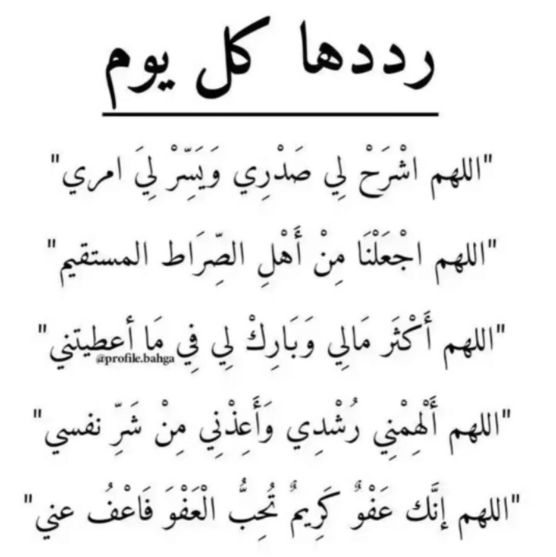 رددها كل يوم
"اللهم اشْرَحْ لِي صَدْرِي وَيَسِّرْ لِيَ امري"
"اللهم اجْعَلْنَا مِنْ أَهْلِ الصِّرَاط المستقيم"
"اللهم أَكْثَر مَالِي وَبَارِكْ لِي فِي مَا أعطيتني"
@profile.bahga
"اللهم أَلْهِمْنِي رُشْدِي وَأَعِذْنِي مِنْ شَرِّ نفسي"
"اللهم إنَّك عَفْوٌ كَرِيمٌ تُحِبُّ الْعَفْوَ فَاعْفُ عني"